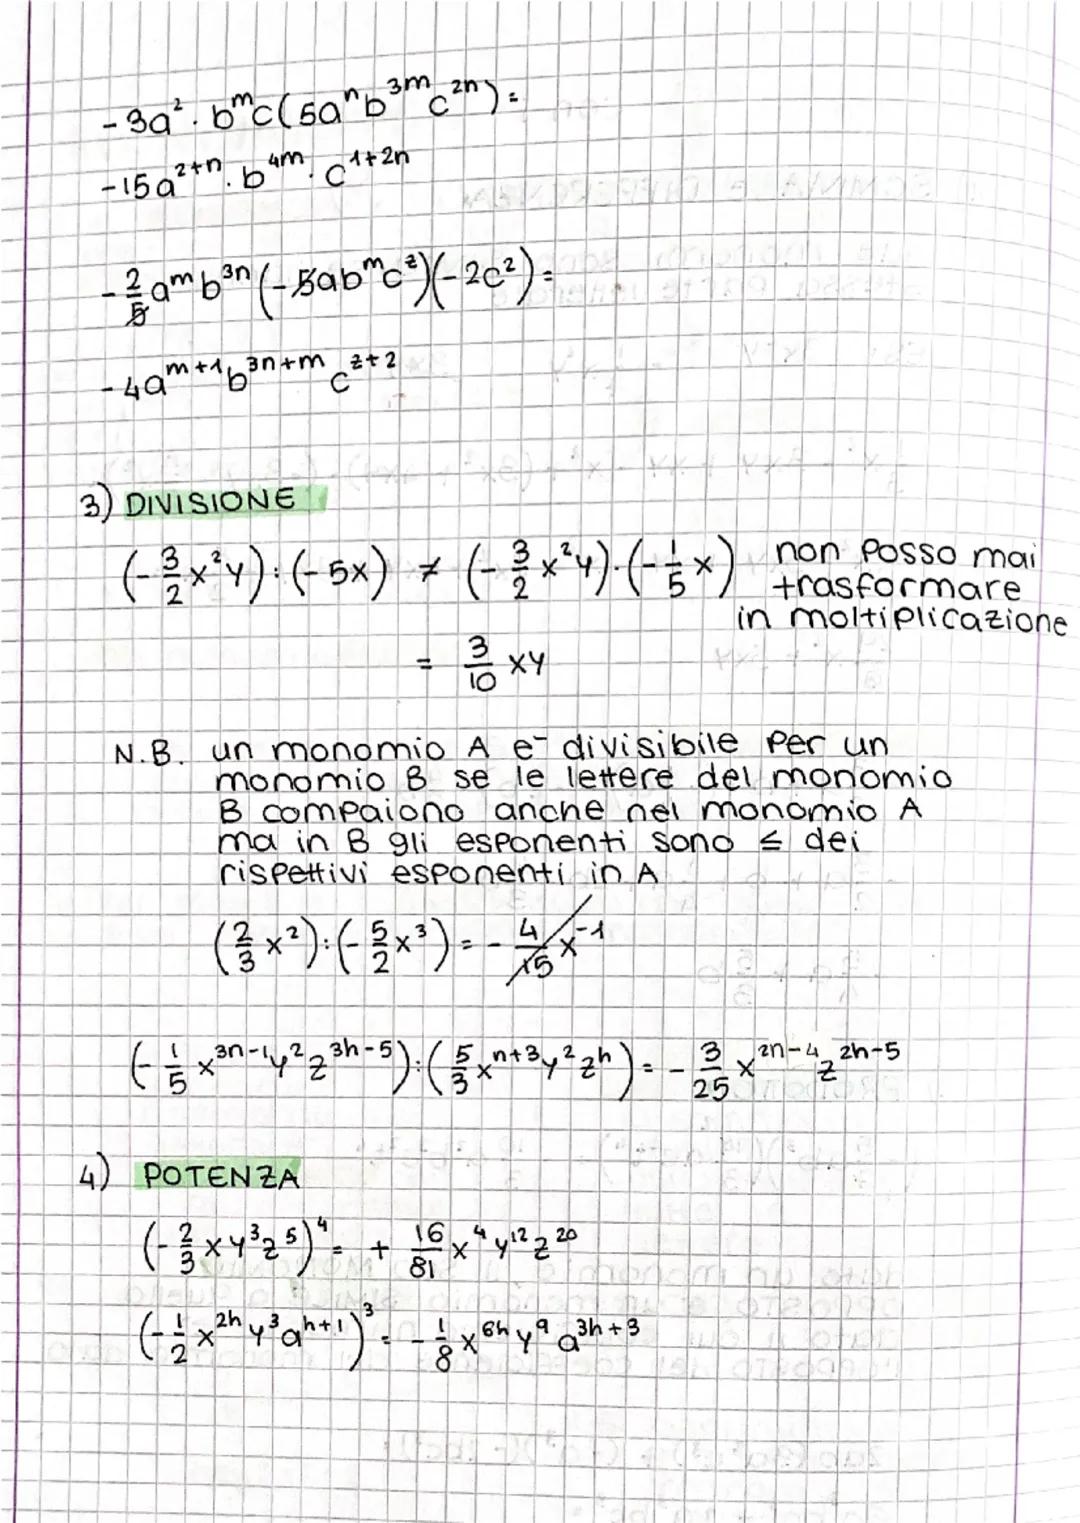 -3a² · bᵐc(5aⁿb³ᵐc²ⁿ) =
-15a²⁺ⁿ · b⁴ᵐ · c¹⁺²ⁿ
-2/5 aᵐb³ⁿ(-5abᵐcᶻ)(-2c²) =
-4aᵐ⁺¹b³ⁿ⁺ᵐ cᶻ⁺²
3) DIVISIONE
(-3/2 x²y) : (-5x) ≠ (-3/2 x²y) · (-1/5 x) non posso mai
trasformare
in moltiplicazione
= 3/10 xy
N.B. un monomio A e- divisibile per un
monomio B se le lettere del monomio
B compaiono anche nel monomio A
ma in B gli esponenti sono ≤ dei
rispettivi esponenti in A
(2/3 x²) : (-5/2 x³) = -4/15 x⁻¹
(-1/5 x³ⁿ⁻¹y²z³ʰ⁻⁵) : (5/3 xⁿ⁺³y²zʰ) = -3/25 x²ⁿ⁻⁴z²ʰ⁻⁵
4) POTENZA
(-2/3 xy³z⁵)⁴ = + 16/81 x⁴y¹²z²⁰
(-1/2 x²ʰy³aʰ⁺¹)³ = -1/8 x⁶ʰy⁹a³ʰ⁺³